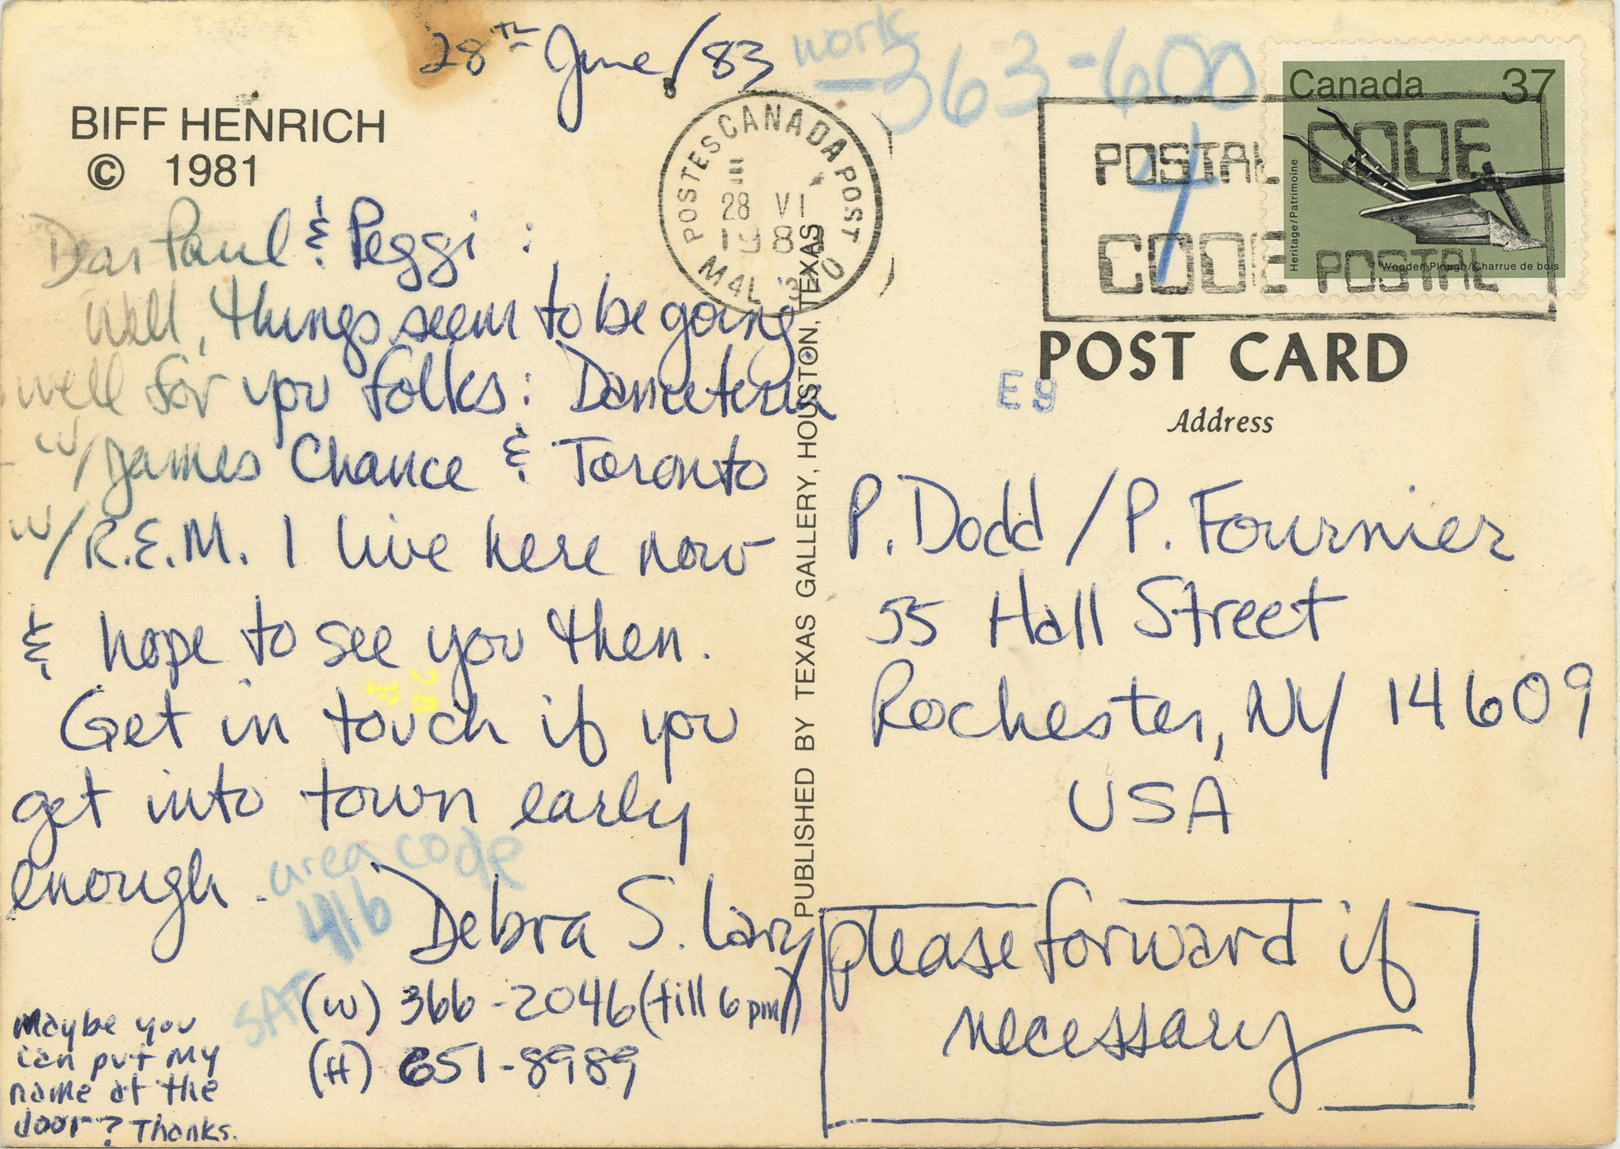 28th June/83
work
363-600
4
BIFF HENRICH
© 1981
POSTES CANADA POST
28 VI
198
M4L 3
Canada 37
Heritage/Patrimoine
Wooden Plough/Charrue de bois
POSTAL CODE
CODE POSTAL
POST CARD
E9
Address
Dear Paul & Peggi:
Well, things seem to be going
well for you folks: Danceteria
w/James Chance & Toronto
w/R.E.M. I live here now
& hope to see you then.
Get in touch if you
get into town early
enough.
area code
416
Debra S. Lary
SAT
(W) 366-2046 (till 6 pm)
(H) 651-8989
Maybe you
can put my
name at the
door? Thanks.
PUBLISHED BY TEXAS GALLERY, HOUSTON, TEXAS
P. Dodd/P. Fournier
55 Hall Street
Rochester, NY 14609
USA
please forward if
necessary